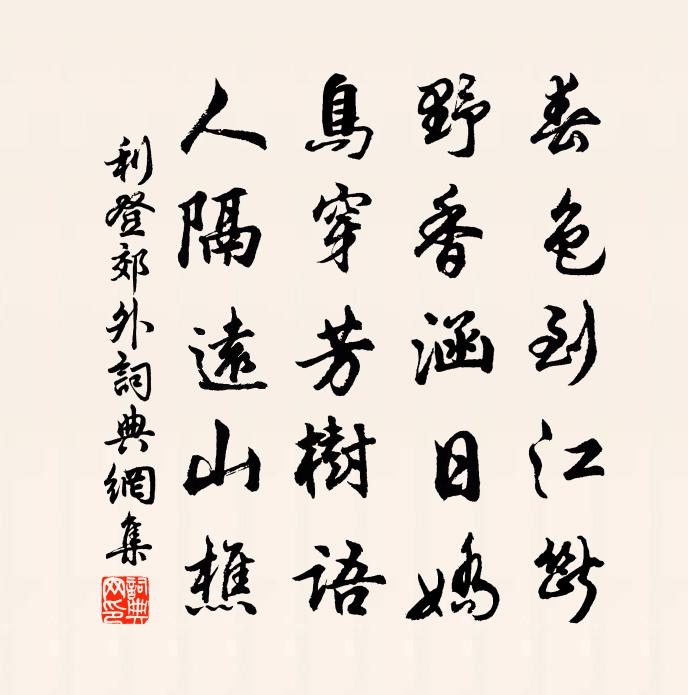 春色到江斷
野香涵日嬌
鳥穿芳樹語
人隔遠山樵
利登郊外詞典網集
詞典网印